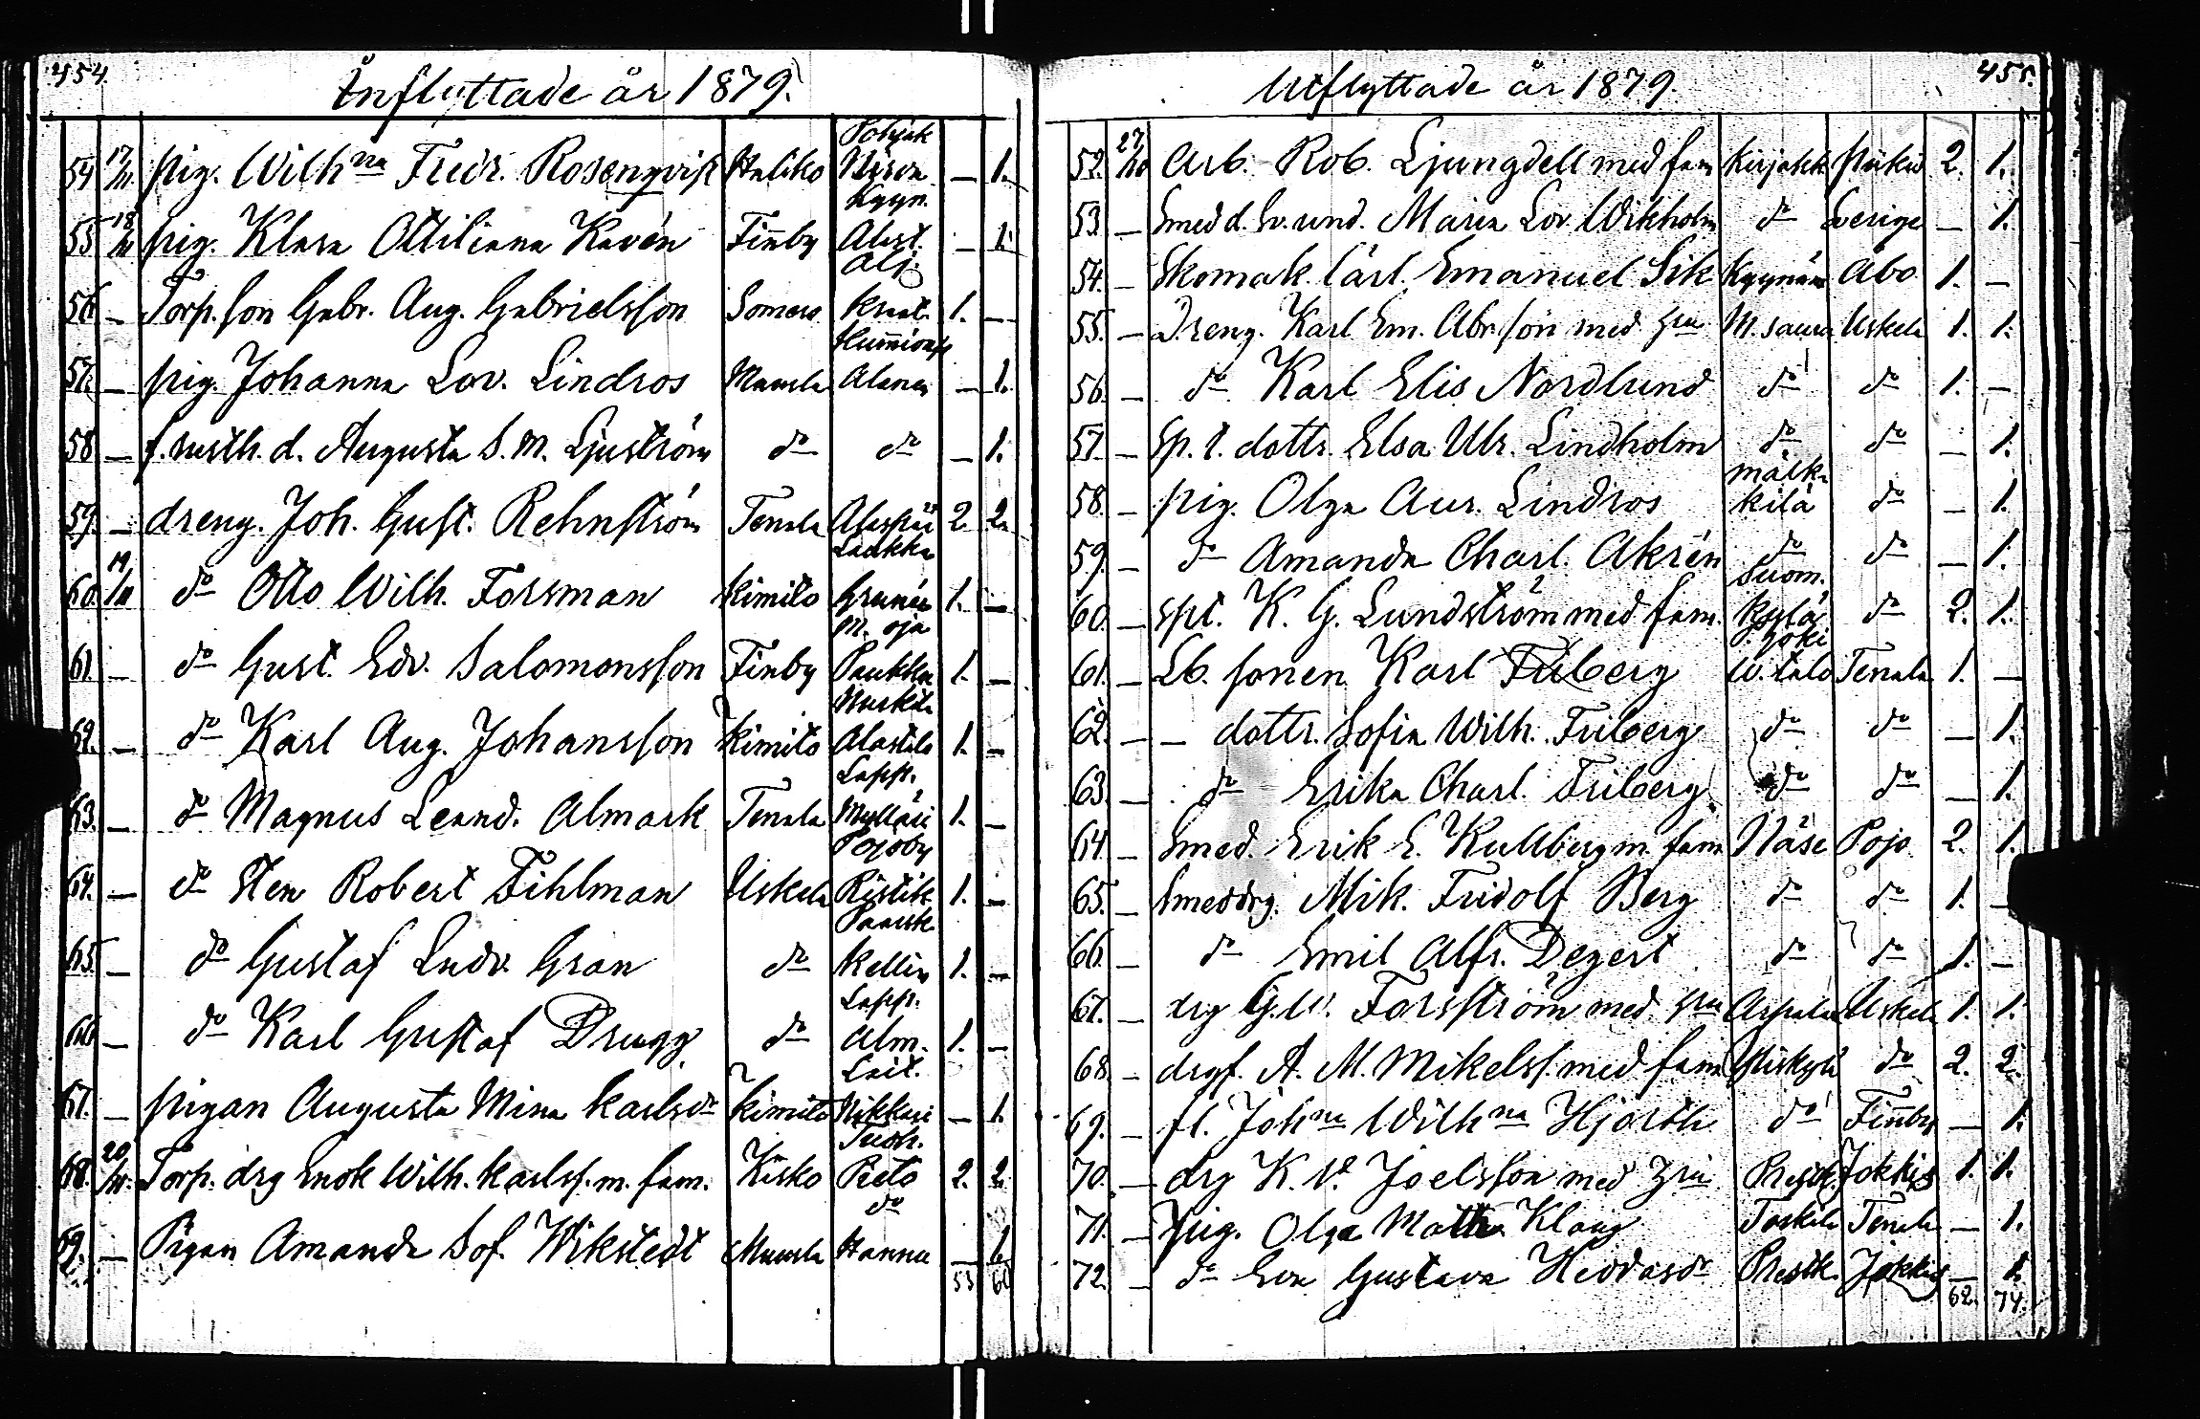 454.
Inflyttade år 1879.
54 17/11 pig. Wilhna Fredr. Rosenqvist Haliko Pohjak Nirva Kyyn. — 1.
55 18/11 pig. Klara Ottiliana Kavén Finby Alast. Alj. — 1
56 — Torp. son Gabr. Aug. Gabrielsson Somero Kraat. 1. —
57. — pig. Johanna Lov. Lindros Muurla Alanen — 1.
58 — f. rusth. d. Augusta S. M. Ljuström do do — 1.
59. — dreng. Joh. Gust. Rehnström Tenala Alaspää 2. 2.
60. 19/11 do Otto Wilh. Forsman Kimito Laukka 1. —
61. — do Gust. Edv. Salomonsson Finby M. oja 1. —
62. — do Karl Aug. Johansson Kimito Alastalo 1. —
63. — do Magnus Leand. Almark Tenala Lapp. Mylläri 1. —
64. — do Sten Robert Fihlman Uskela Ristik. 1. —
65. — do Gustaf Ludv. Gran do 1. —
66 — do Karl Gustaf Drugg do Lapp. Alm. 1. —
67. — pigan Augusta Mina Karlsdr Kimito Nikkari — 1.
68. 20/11. Torp. drg Enok Wilh. Karlss. m. fam. Kisko Tuoh. 2. 2.
69. — Pigan Amanda Sof. Wikstedt Muurla do Hannu — 1
53 60
455.
Utflyttade år 1879.
52. 27/10 Arb. Rob. Ljungdell med fam Kirjakk. 2. 1.
53. — Smed d. Maria Lov. Wikholm do Sverige — 1.
54. — Skomak. lärl. Emanuel Sik Åbo 1. —
55. — Dreng. Karl Em. Abr.son med hru Uskela 1. 1.
56. — do Karl Elis Nordlund do do 1. —
57. — Sp. t. dottr. Elsa Ulr. Lindholm do do — 1.
58. — pig. Olga Aur. Lindros Mälkkilä do — 1.
59. — do Amanda Charl. Akrén do do — 1.
60. — spt. K. G. Lundström med fam. Suom. kylä do 2. 1.
61. — Lb. sonen Karl Friberg W. talo Tenala 1. —
62. — — dottr. Sofia Wilh. Friberg do do — 1.
63. — do Erika Charl. Friberg. do do — 1.
64. — Smed. Erik E. Kullberg m. fam Näse Pojo 2. 1.
65. — Smeddrg. Mik. Fridolf Berg do do 1. —
66. — do Emil Alfr. Degert do do 1. —
67. — drg G. W. Forsström med hru Uskela 1. 1.
68. — drgf. A. M. Mikelss. med fam do 2. 2.
69. — fl. Johna Wilhna Hjorth do Finby — 1.
70. — drg K. V. Joelsson med hru Prestk. Jokkis 1. 1.
71. — Pig. Olga Matha Klang Toskila Tenala — 1.
72. — do Eva Gustava Hedvasdr Prestk. Jokkis — 1.
62. 74.